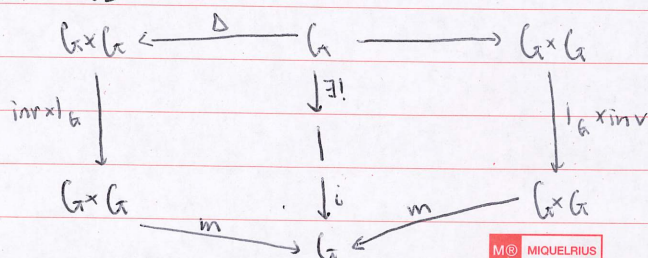 Δ
G×G G G×G
∃!
inv×1_G 1 1_G×inv
i
G×G m m G×G
G
M® MIQUELRIUS